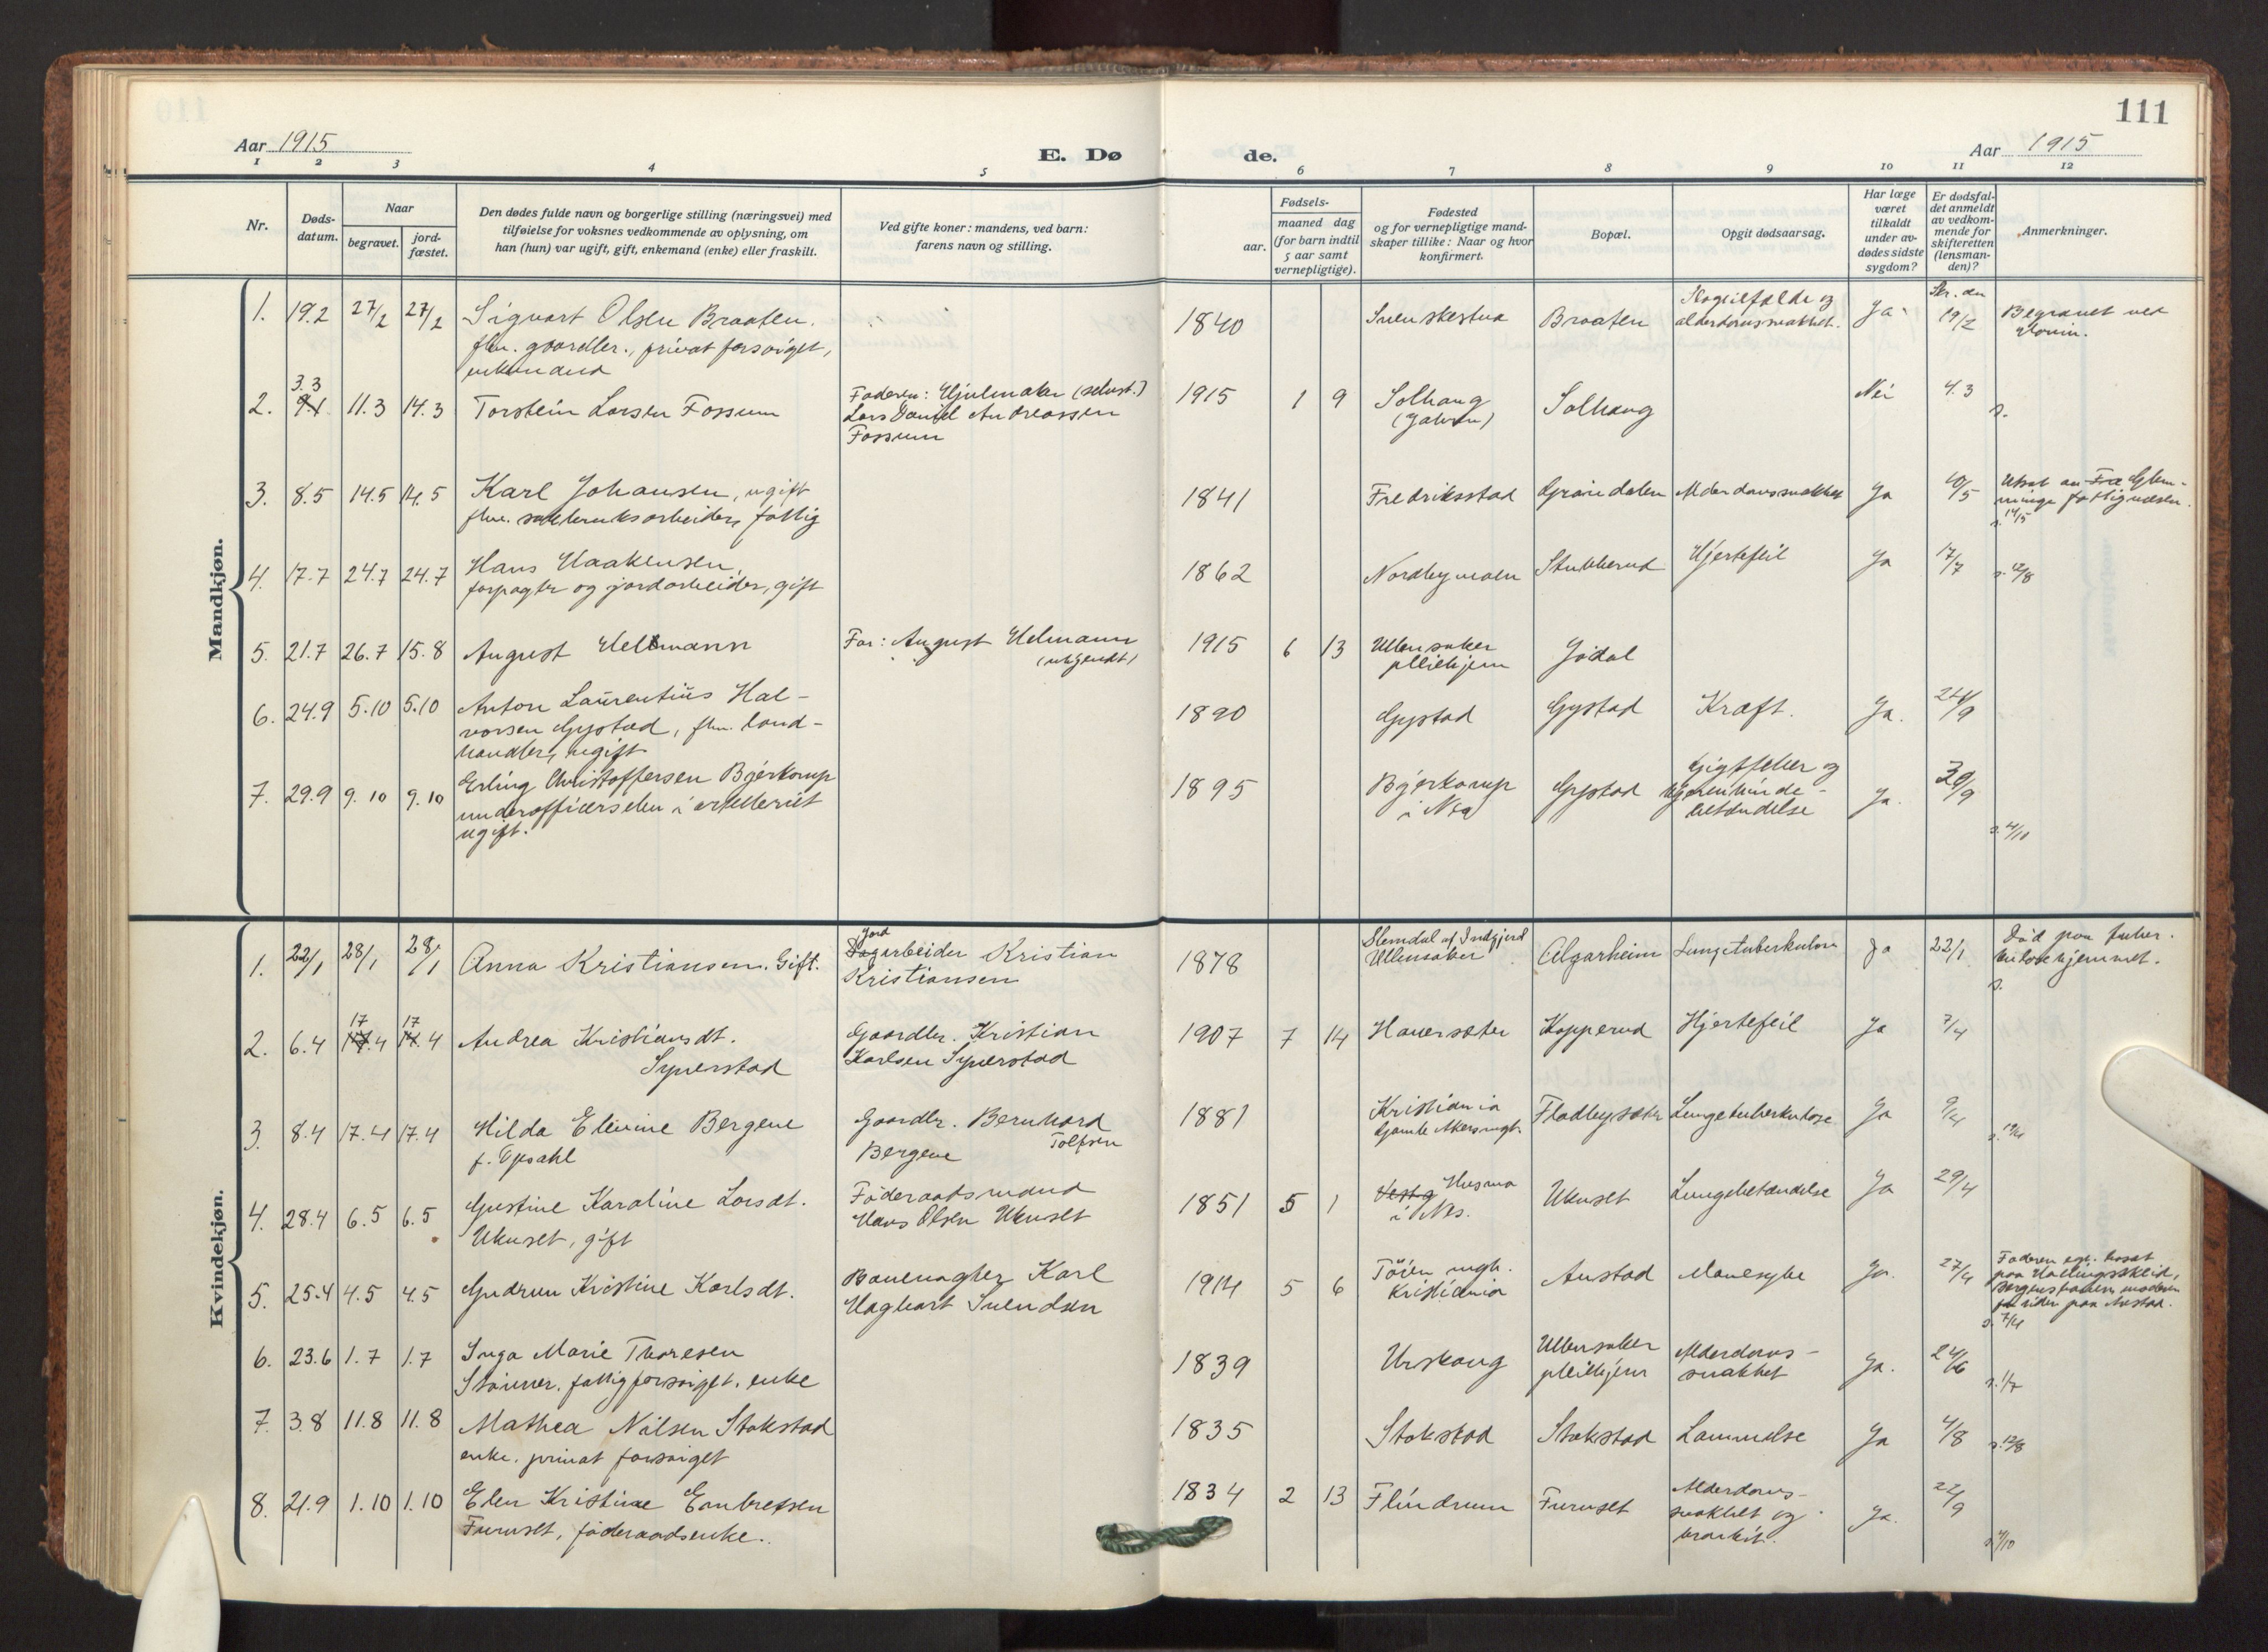 111
Aar 1915
E. Dø
de.
Aar 1915
1 2 3 4 5 6 7 8 9 10 11 12
Nr.
Døds-
datum.
Naar
begravet.
jord-
fæstet.
Den dødes fulde navn og borgerlige stilling (næringsvei) med
tilføielse for voksnes vedkommende av oplysning, om
han (hun) var ugift, gift, enkemand (enke) eller fraskilt.
Ved gifte koner: mandens, ved barn:
farens navn og stilling.
Fødsels-
aar.
maaned dag
(for barn indtil
5 aar samt
vernepligtige).
Fødested
og for vernepligtige mand-
skaper tillike: Naar og hvor
konfirmert.
Bopæl.
Opgit dødsaarsag.
Har læge
været
tilkaldt
under av-
dødes sidste
sygdom?
Er dødsfal-
det anmeldt
av vedkom-
mende for
skifteretten
(lensman-
den)?
Anmerkninger.
Mandkjøn.
1. 19.2 27/2 27/2 Sigvart Olsen Braaten.
fhv. gaardbr., privat forsørget,
enkemand
1840 Svenskestua Braaten
alderdomssvakhet.
Ja
19/2
Begravet ved
Hovin.
2. 3.3 11.3 14.3 Torstein Larsen Fossum
Faderen: Hjulmaker (selvst.)
Lars Daniel Andreassen
Fossum
1915 1 9 Solhaug
Solhaug Nei 4.3
s.
3. 8.5 14.5 14.5 Karl Johansen, ugift
fhv. arbeider, fattig
1841 Fredriksstad Grøndalen Alderdomssvakhet Ja 10/5
Utsat av Fra Glem-
minge fattigvæsen.
s. 14/5
4. 17.7 24.7 24.7 Hans Haakensen,
forpagter og jordarbeider, gift
1862 Nordbymoen Stubberud Hjertefeil Ja 17/7 s. 12/8
5. 21.7 26.7 15.8 August Helmann
Far: August Helmann
1915 6 13 Ullensaker
pleiehjem
Jødal
6. 24.9 5.10 5.10 Anton Laurentius Hal-
vorsen Gystad, fhv. land-
handler, ugift
1890 Gystad Gystad Kræft. Ja. 24/9
7. 29.9 9.10 9.10 Erling Christoffersen Bjerkorup
underofficerselev i artilleriet
ugift.
1895 Bjerkorup
i Nes
Gystad Gigtfeber og
Hjernehinde-
betændelse
Ja. 30/9
s. 4/10
Kvindekjøn.
1. 22/1 28/1 28/1 Anna Kristiansen. Gift.
Jord
Dagarbeider Kristian
Kristiansen
1878
Ullensaker
Algarheim Lungetuberkulose Ja 22/1
Død paa tuber-
kulosehjemmet.
s.
2. 6.4 17.4 17.4 Andrea Kristiansdt.
Synerstad
Gaardbr. Kristian
Karlsen Synerstad
1907 7 14 Hauersæter Kopperud Hjertefeil Ja 7/4
3. 8.4 17.4 17.4 Hilda Elevine Bergene
f. Opsahl
Gaardbr. Bernhard
Tolfsen
Bergene
1881 Kristiania
Gamle Akers mgh.
Fladbysæter Lungetuberkulose. Ja 9/4
s. 19/4
4. 28.4 6.5 6.5 Gustine Karoline Larsdt.
Ukuset, gift
Føderaadsmand
Hans Olsen Ukuset
1851 5 1 Vestg Husmo
i Nes.
Ukuset Lungebetændelse Ja 29/4
5. 25.4 4.5 4.5 Gudrun Kristine Karlsdt.
Banevogter Karl
Hagbart Svendsen
1914 5 6 Tøien mgh.
Kristiania
Austad Mavesyke Ja. 27/4
Faderen egl. bosat
paa Hallingskeid,
Bergensbanen, moderen
paa Austad.
s. 7/4
6. 23.6 1.7 1.7 Inga Marie Thoresen
Stønner. fattigforsørget. enke
1839 Urskoug Ullensaker
pleiehjem
Alderdoms-
svakhet
Ja. 24/6
s. 1/7
7. 3.8 11.8 11.8 Mathea Nilsen Stokstad
enke. privat forsørget
1835 Stokstad Stokstad Lammelse Ja 4/8 s. 12/8
8. 21.9 1.10 1.10 Elen Kristine Embretsen
Furuset, føderaadsenke.
1834 2 13 Flindrum Furuset Alderdoms-
svakhet og
bronkit.
Ja. 22/9
s. 4/10